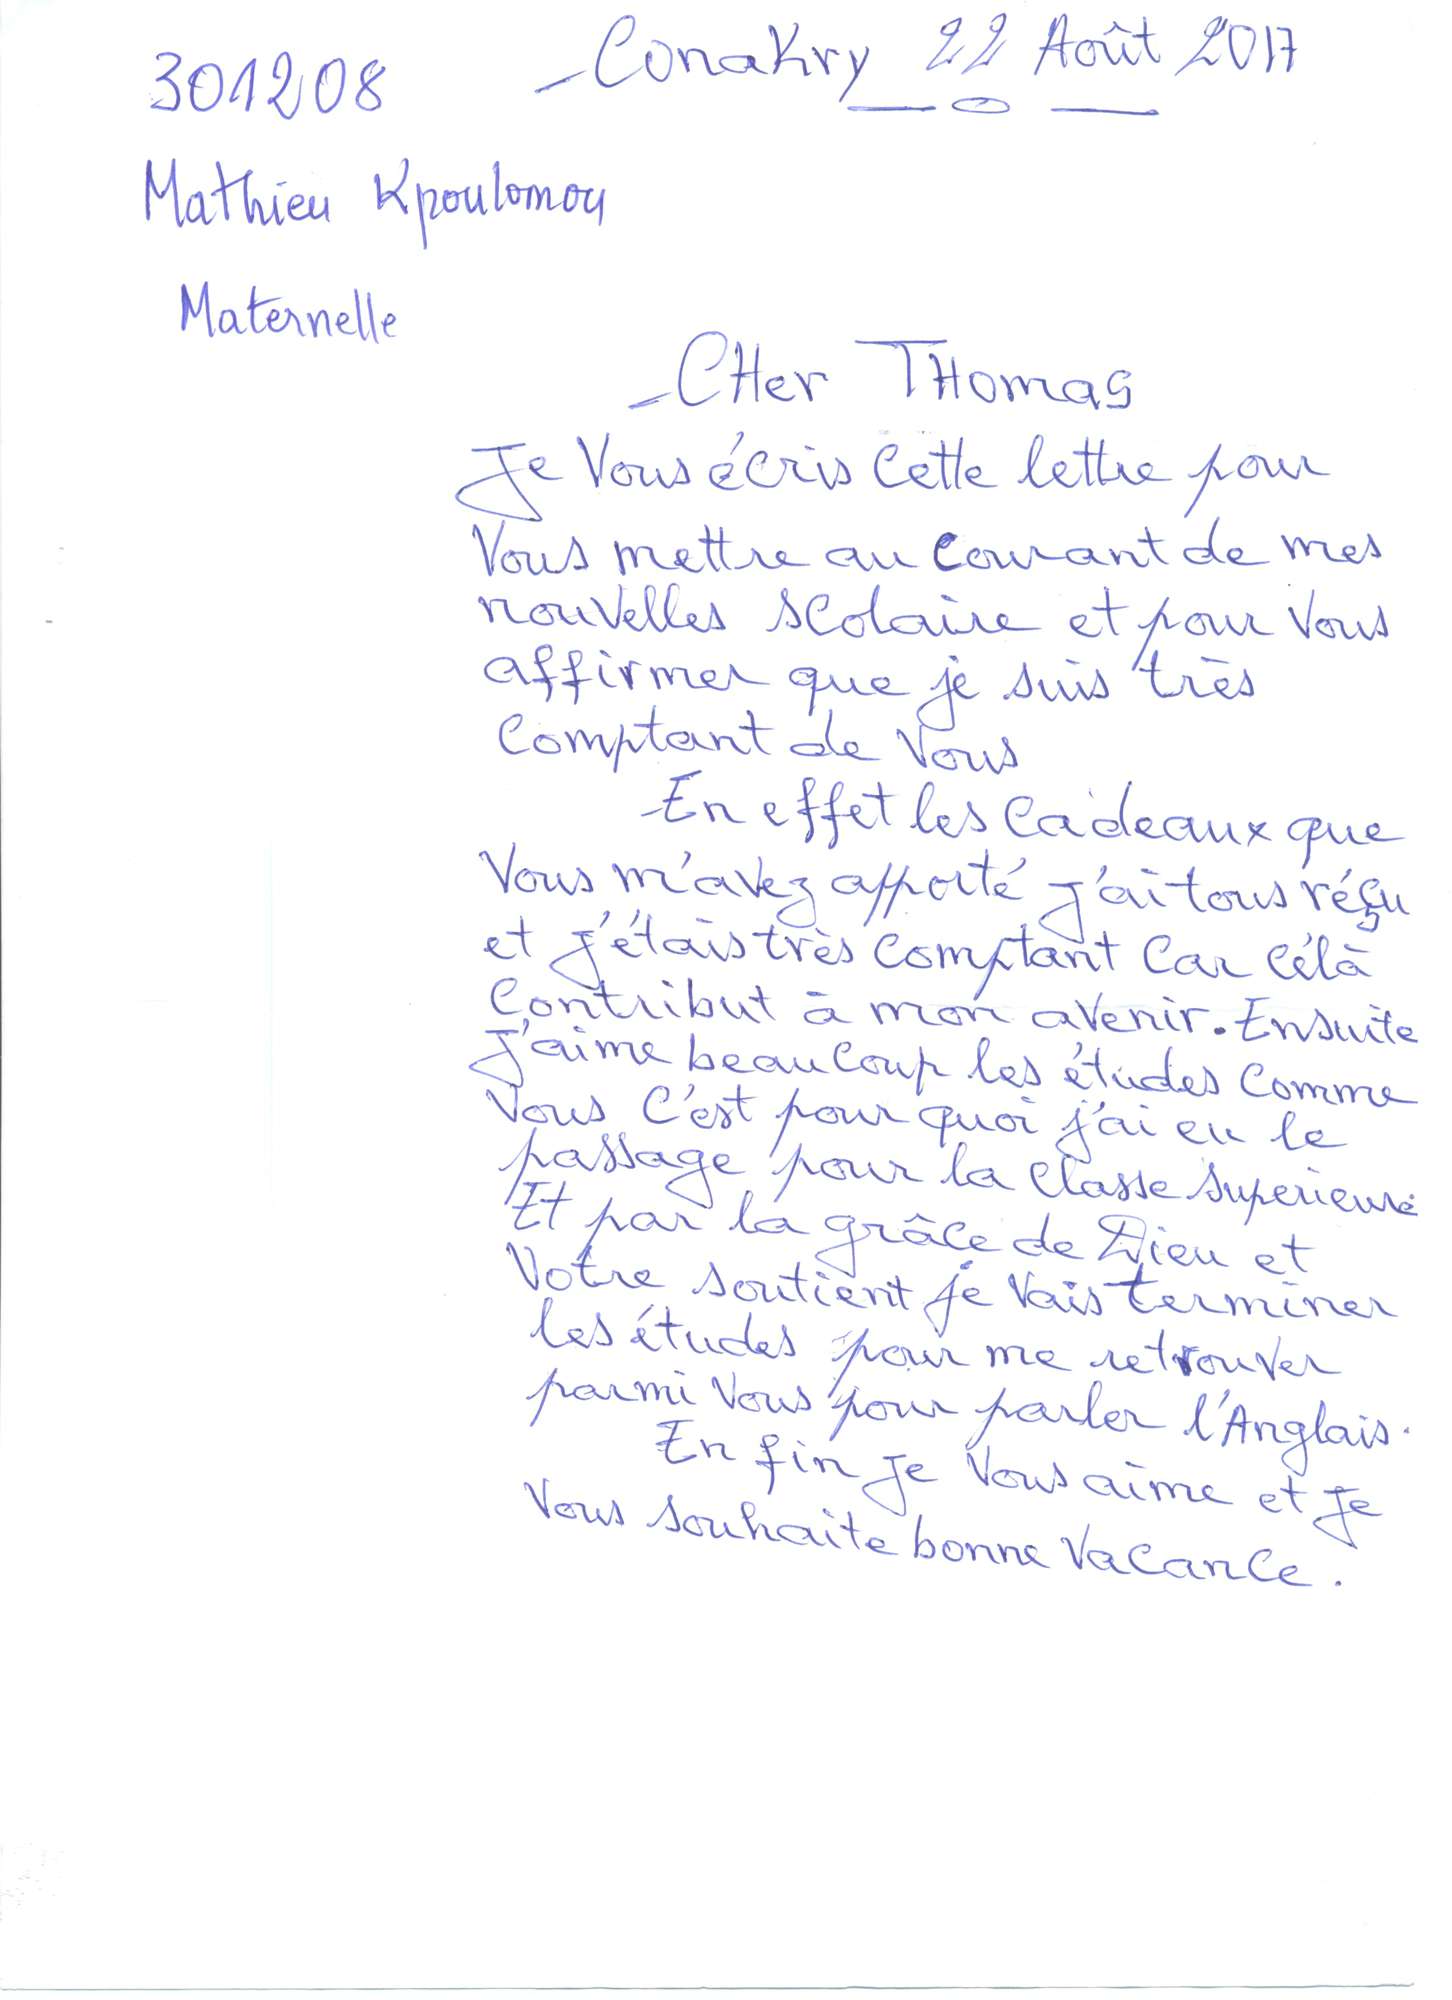 301208
- Conakry 22 Août 2017
Mathieu Kpoulomou
Maternelle
- CHer THomas
Je Vous écris Cette lettre pour
Vous mettre au courant de mes
nouvelles scolaire et pour Vous
affirmer que je suis très
Comptant de Vous
-En effet les Cadeaux que
Vous m'avez apporté J'ai tous réçu
et J'étais très Comptant Car Célà
Contribut à mon avenir. Ensuite
J'aime beaucoup les études Comme
Vous C'est pour quoi j'ai eu le
passage pour la Classe Superieure
Et par la grâce de Dieu et
Votre soutient je Vais terminer
les études pour me retrouver
parmi Vous pour parler l'Anglais.
En fin Je Vous aime et Je
Vous souhaite bonne Vacance.